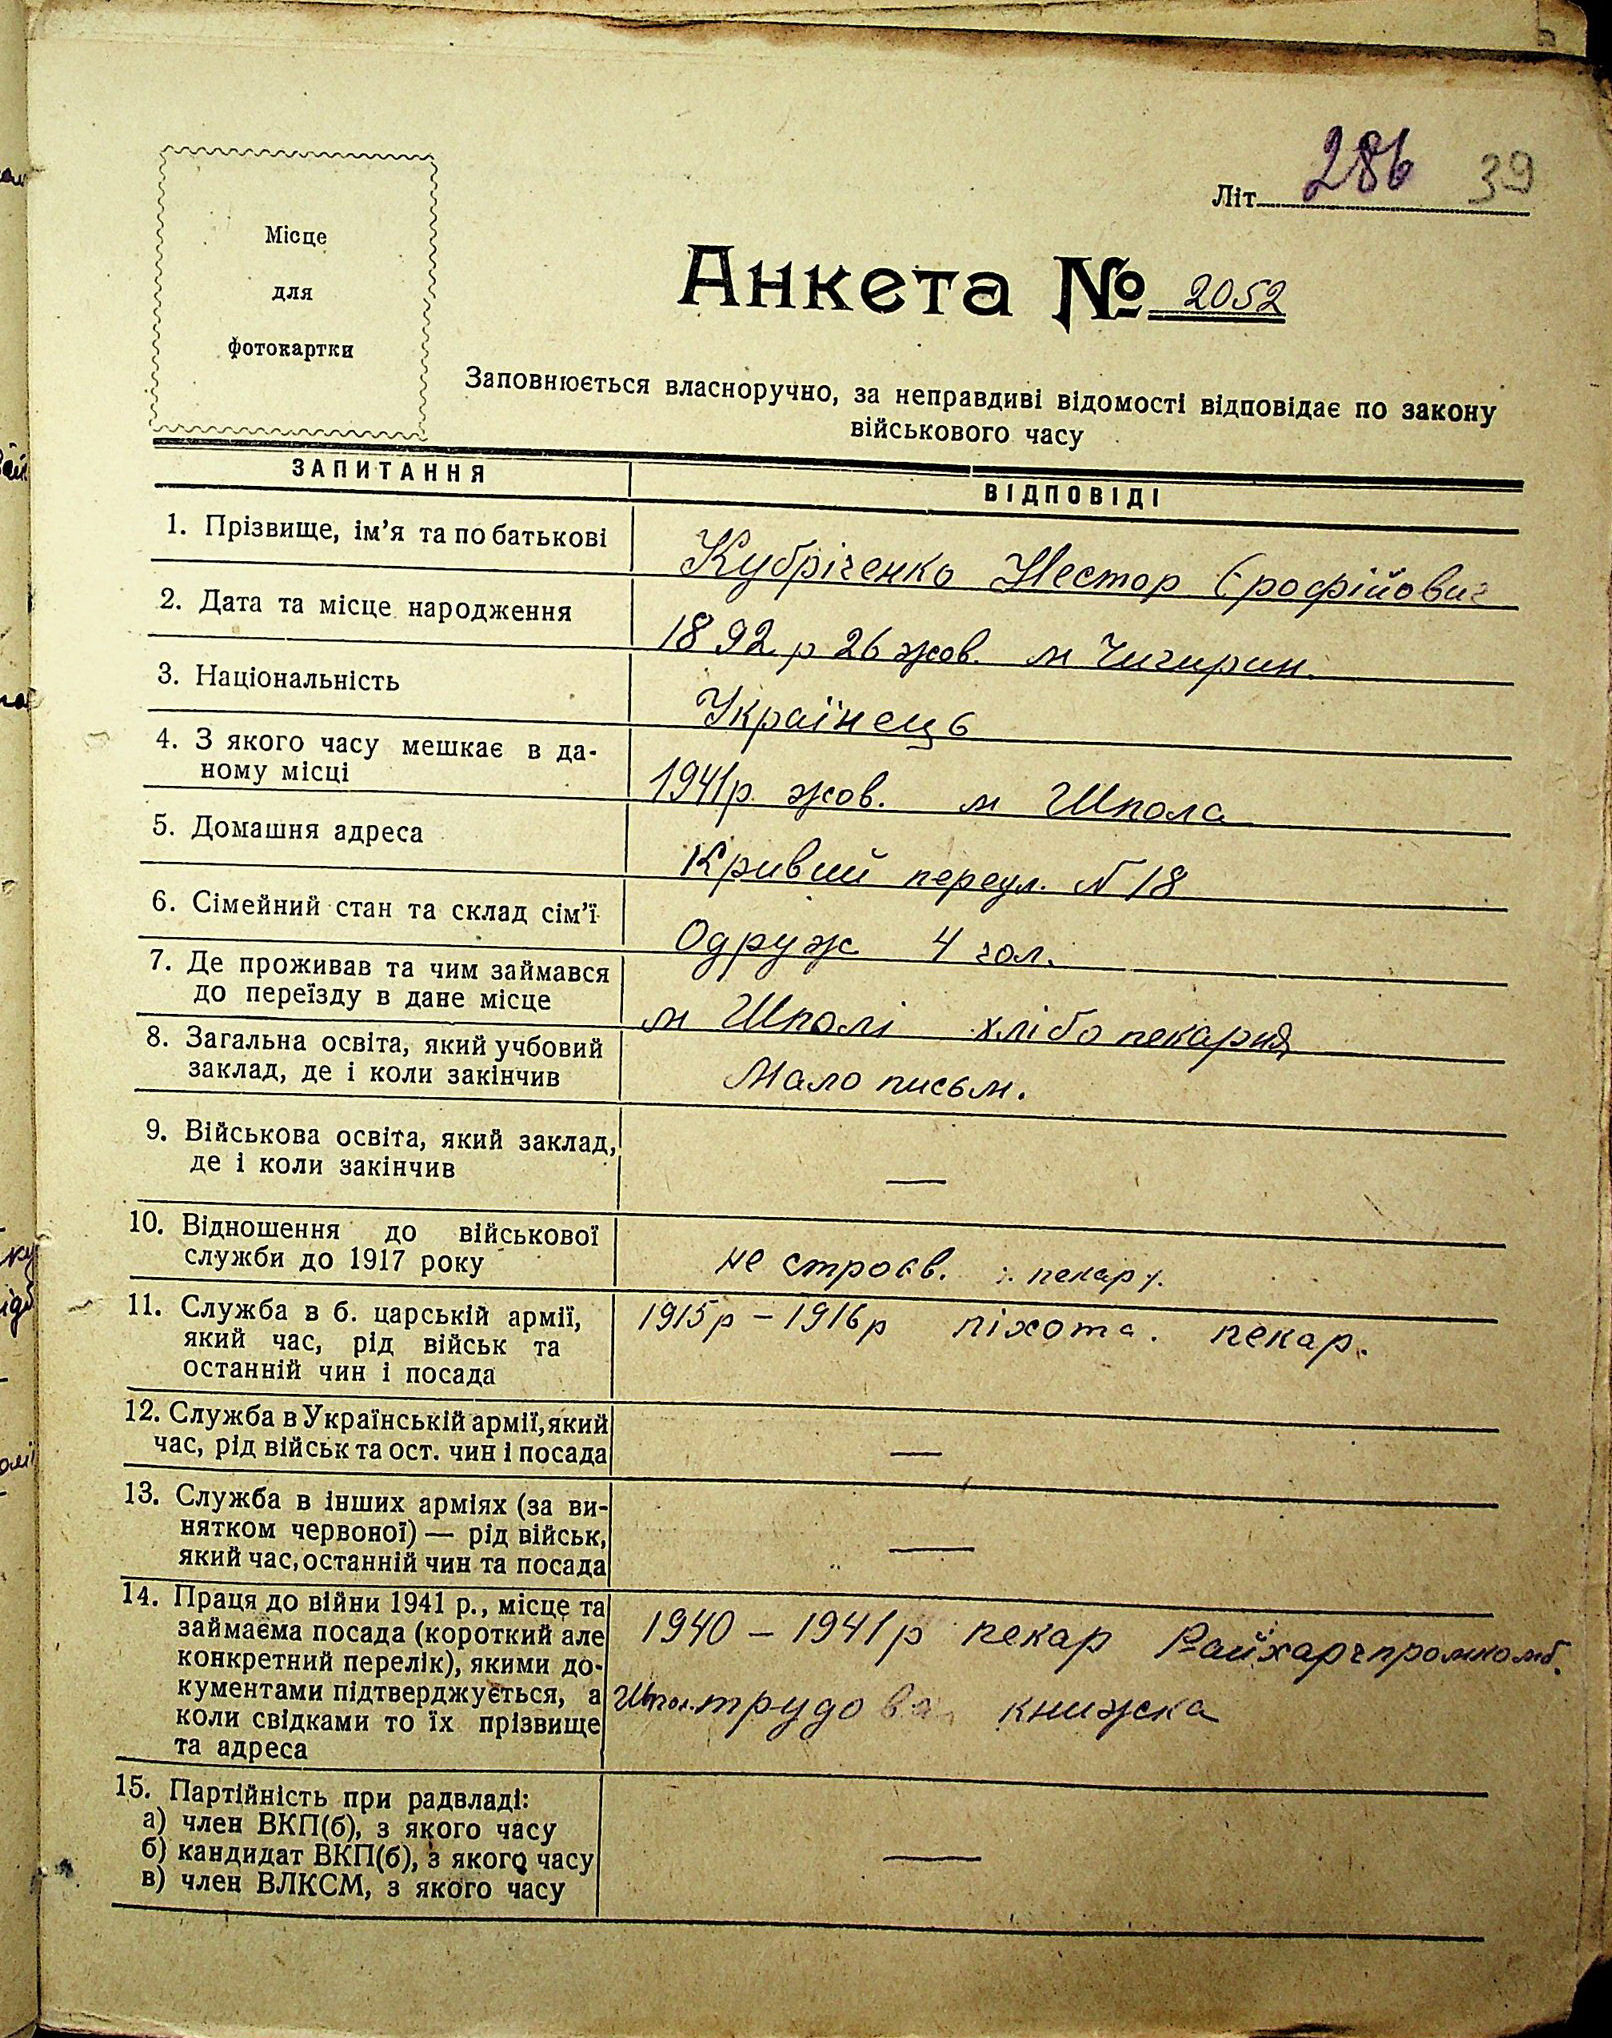 Літ. 286 39
Місце
для
фотокартки
Анкета № 2052
Заповнюється власноручно, за неправдиві відомості відповідає по закону
військового часу
ЗАПИТАННЯ ВІДПОВІДІ
1. Прізвище, ім'я та по батькові
Кубріченко Нестор Єрофійович
2. Дата та місце народження
1892 р 26 жов. м Чигирин.
3. Національність
Українець
4. З якого часу мешкає в да-
ному місці
1941р. жов. м Шпола
5. Домашня адреса
Кривий переул. N 18
6. Сімейний стан та склад сім'ї
Одруж 4 чол.
7. Де проживав та чим займався
до переїзду в дане місце
м Шполі хлібо пекарня
8. Загальна освіта, який учбовий
заклад, де і коли закінчив
Мало письм.
9. Військова освіта, який заклад,
де і коли закінчив
—
10. Відношення до військової
служби до 1917 року
не строєв. пекар
11. Служба в б. царській армії,
який час, рід військ та
останній чин і посада
1915р – 1916р піхота. пекар.
12. Служба в Українській армії, який
час, рід військ та ост. чин і посада
—
13. Служба в інших арміях (за ви-
нятком червоної) — рід військ,
який час, останній чин та посада
—
14. Праця до війни 1941 р., місце та
займаєма посада (короткий але
конкретний перелік), якими до-
кументами підтверджується, а
коли свідками то їх прізвище
та адреса
1940 – 1941р пекар Райхарчпромкомб.
Шпол. трудова книжка
15. Партійність при радвладі:
а) член ВКП(б), з якого часу
б) кандидат ВКП(б), з якого часу
в) член ВЛКСМ, з якого часу
—